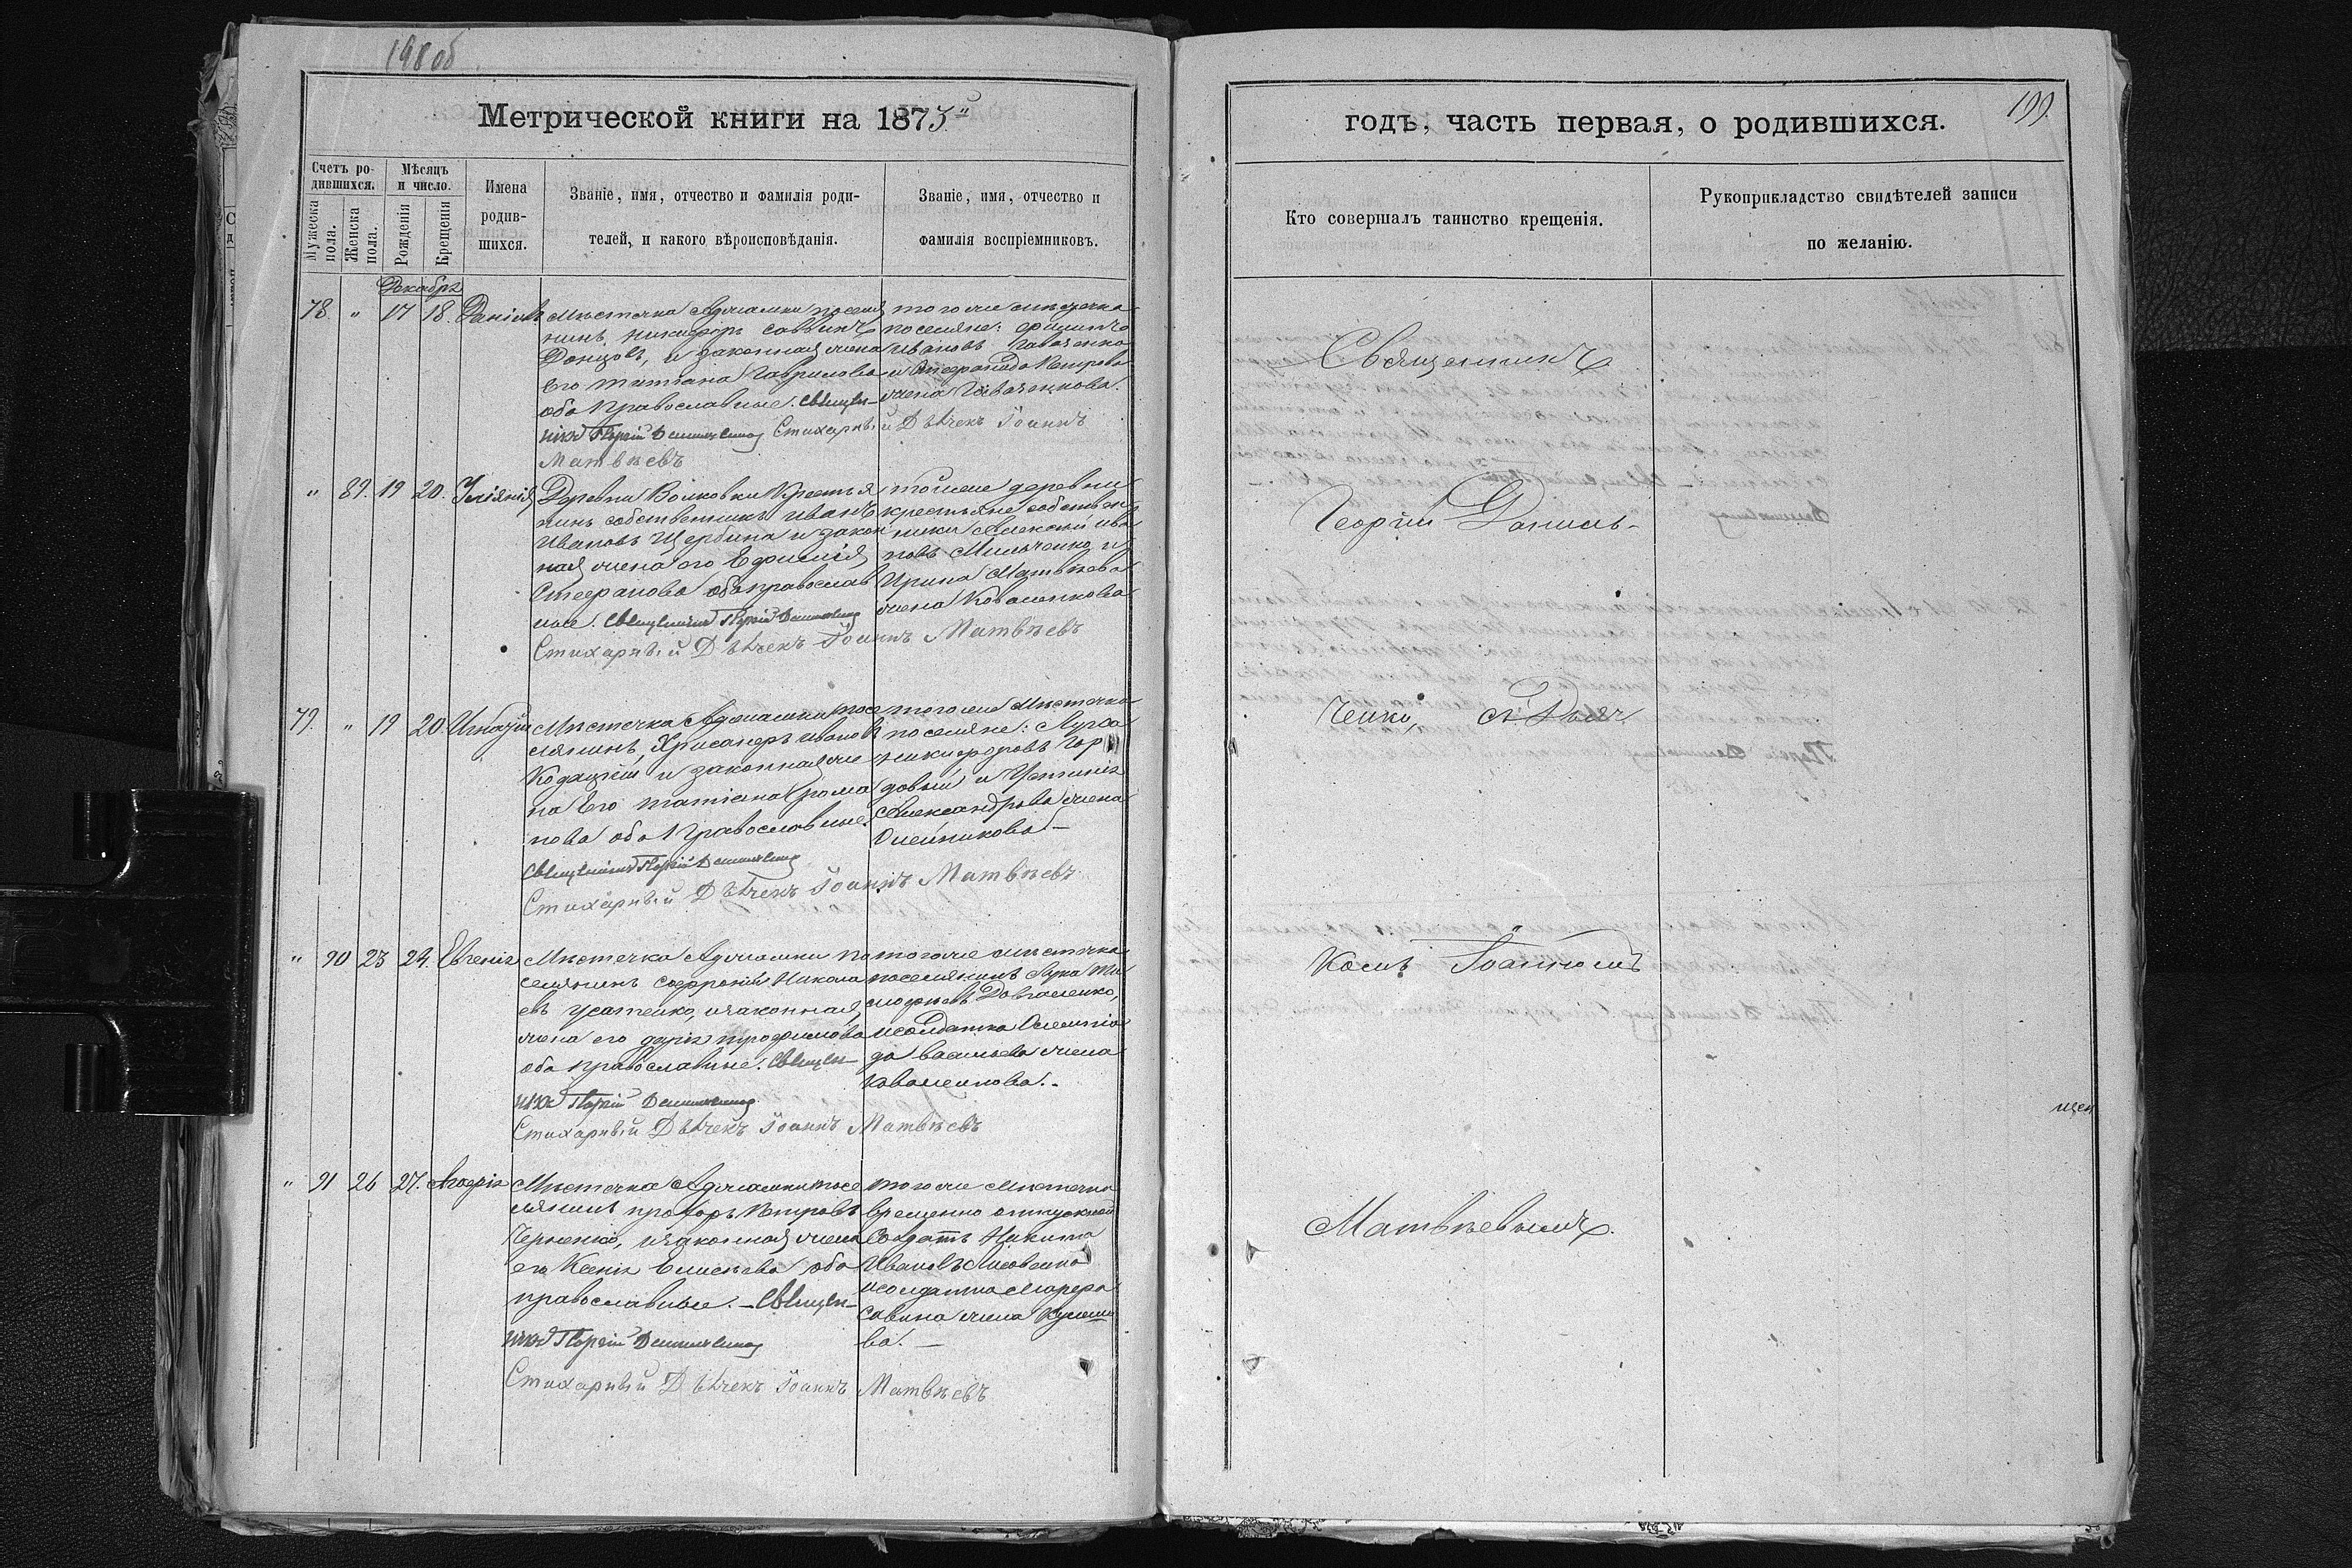 198 об
Метрической книги на 1873й
Счетъ ро-
дившихся.
Мѣсяцъ
и число.
Мужеска
пола.
Женска
пола.
Рожденія
Крещенія
Имена
родив-
шихся.
Званіе, имя, отчество и фамилія роди-
телей, и какого вѣроисповѣданія.
Званіе, имя, отчество и
фамилія воспріемниковъ.
Декабрь
78. " 17 18. Даніилъ Мѣстечка Аджамки поселя
нинъ Никифоръ Саввинъ
Донцовъ, и законная жена
его Татіана Гаврилова
оба православные. Священ-
никъ Георгій
Стихарный Дьячекъ Іоаннъ
Матвѣевъ
того же мѣстечка
поселяне: Филиппъ
Ивановъ
и Петрова
жена
" 89. 19 20. Іуліянія Деревни Волковки Крестья
нинъ собственникъ Иванъ
Ивановъ Щербина и закон
ная жена его Ефимія
Стефанова оба православ
ные. Священникъ Георгій
Стихарный Дьячекъ Іоаннъ Матвѣевъ
тойже деревни
крестьяне собствен
ники Алексѣй Ива
новъ и
Ирина Матвѣева
жена Коваленкова
79. " 19 20. Игнатій Мѣстечка Аджамки посе
лянинъ, Хрисанфъ Ивановъ
Кодацкій и законная же
на его Татіана Рома
нова оба православные.
Священникъ Георгій
Стихарный Дьячекъ Іоаннъ Матвѣевъ
того же мѣстечка
поселяне: Лука
Никифоровъ Гор
довый и Устинія
Александрова жена
Олейникова –
" 90 23 24. Евгенія Мѣстечка Аджамки по
селянинъ Софроній Никола
евъ Усатенко, и законная
жена его Дарія Трофимова
оба православные. Священ-
никъ Георгій
Стихарный Дьячекъ Іоаннъ Матвѣевъ
того же мѣстечка
поселянинъ Лука Ти
мофѣевъ Довгаленко,
и солдатка Олимпіа
да Васильева жена
Коваленкова. -
" 91 26 27. Агафія Мѣстечка Аджамки посе
лянинъ Прохоръ Петровъ
Черненко, и законная жена
его Ксенія Елисѣева оба
православные. – Священ-
никъ Георгій
Стихарный Дьячекъ Іоаннъ Матвѣевъ
того же мѣстечка
временно отпускной
Солдатъ Никита
Ивановъ Лисовенко
и солдатка Марфа
Савина жена
ва. –
годъ, часть первая, о родившихся.
199.
Кто совершалъ таинство крещенія.
Рукоприкладство свидѣтелей записи
по желанію.
Священникъ
Георгій Даниль-
ченко, съ Дьяч
комъ Іоанномъ
Матвѣевымъ.